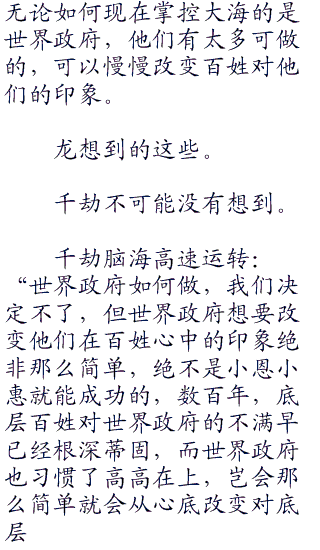 无论如何现在掌控大海的是
世界政府，他们有太多可做
的，可以慢慢改变百姓对他
们的印象。
龙想到的这些。
千劫不可能没有想到。
千劫脑海高速运转：
“世界政府如何做，我们决
定不了，但世界政府想要改
变他们在百姓心中的印象绝
非那么简单，绝不是小恩小
惠就能成功的，数百年，底
层百姓对世界政府的不满早
已经根深蒂固，而世界政府
也习惯了高高在上，岂会那
么简单就会从心底改变对底
层